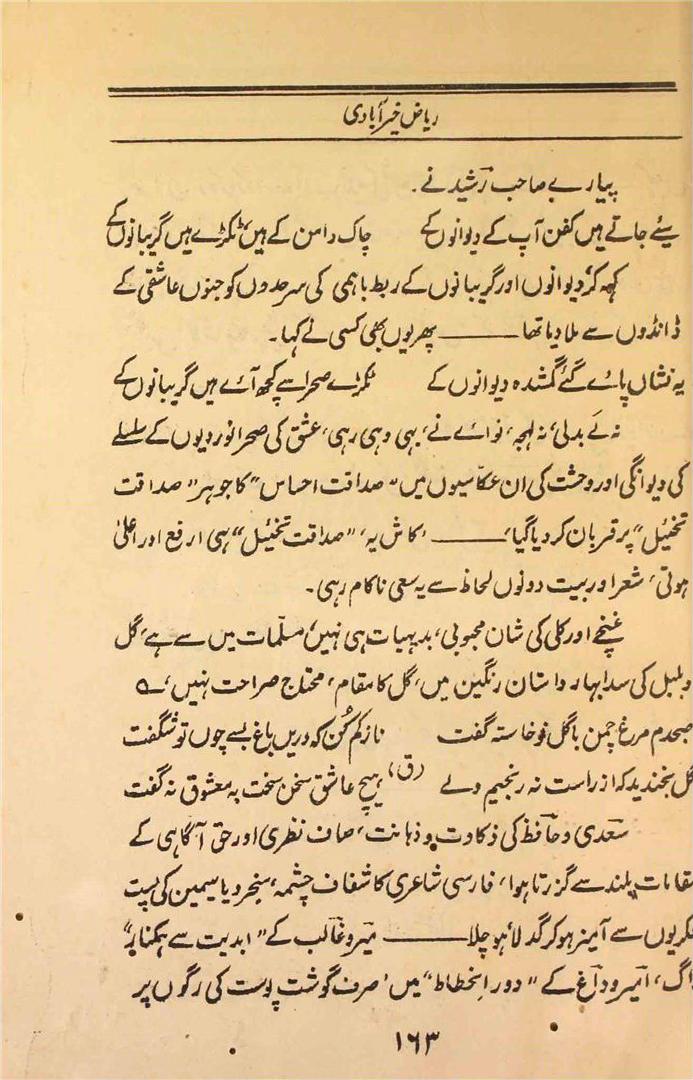 ریاض خیرآبادی
پیارے صاحب رشید نے۔
سیئے جاتے ہیں کفن آپ کے دیوانوں کے چاک دامن کے ہیں، ٹکڑے ہیں گریبانوں کے
کہہ کر، دیوانوں اور گریبانوں کے ربط باہمی کی سرحدوں کو جنوں عاشقی کے
ڈانڈوں سے ملا دیا تھا ـــــــ پھر یوں بھی کسی نے کہا۔
یہ نشاں پائے گئے گمشدہ دیوانوں کے ٹکڑے صحرا سے کچھ آئے ہیں گریبانوں کے
نہ لَے بدلی، نہ لہجہ، نوا اے نے، یہی وہی رہی، عشق کی صحرانوردیوں کے سلسلے
کی دیوانگی اور وحشت کی ان عکّاسیوں میں "صداقت احساس" کا جوہر "صداقت
تخیئل" پر قربان کر دیا گیا، ـــــــ ، کاش یہ، "صداقت تخیئل" ہی ارفع اور اعلیٰ
ہوتی، شعر اور بیت دونوں لحاظ سے یہ سعی ناکام رہی۔
غنچے اور کلی کی شان محبوبی، بدیہیات ہی نہیں، مسلّمات میں سے ہے، گل
و بلبل کی سدا بہار داستان رنگین میں، گل کا مقام، محتاج صراحت نہیں، ے
صبحدم مرغ چمن با گل نوخاستہ گفت ناز کم کُن کہ دریں باغ بسے چوں تو شگفت
گل بخندید کہ از راست نہ رنجیم ولے (ق) ہیچ عاشق سخن سخت بہ معشوق نہ گفت
سعدی و حافظ کی ذکاوت و ذہانت، صاف نظری اور حق آگاہی کے
مقامات بلند سے گزرتا ہوا، فارسی شاعری کا شفاف چشمہ، سنجر و یاسمین کی پست
فکریوں سے آمیز ہو کر گدلا ہو چلا ـــــــ میر و غالب کے "ابدیت سے ہمکنار"
راگ، امیر و داغ کے "دور انحطاط" میں، صرف گوشت پوست کی رگوں پر
۱۶۳